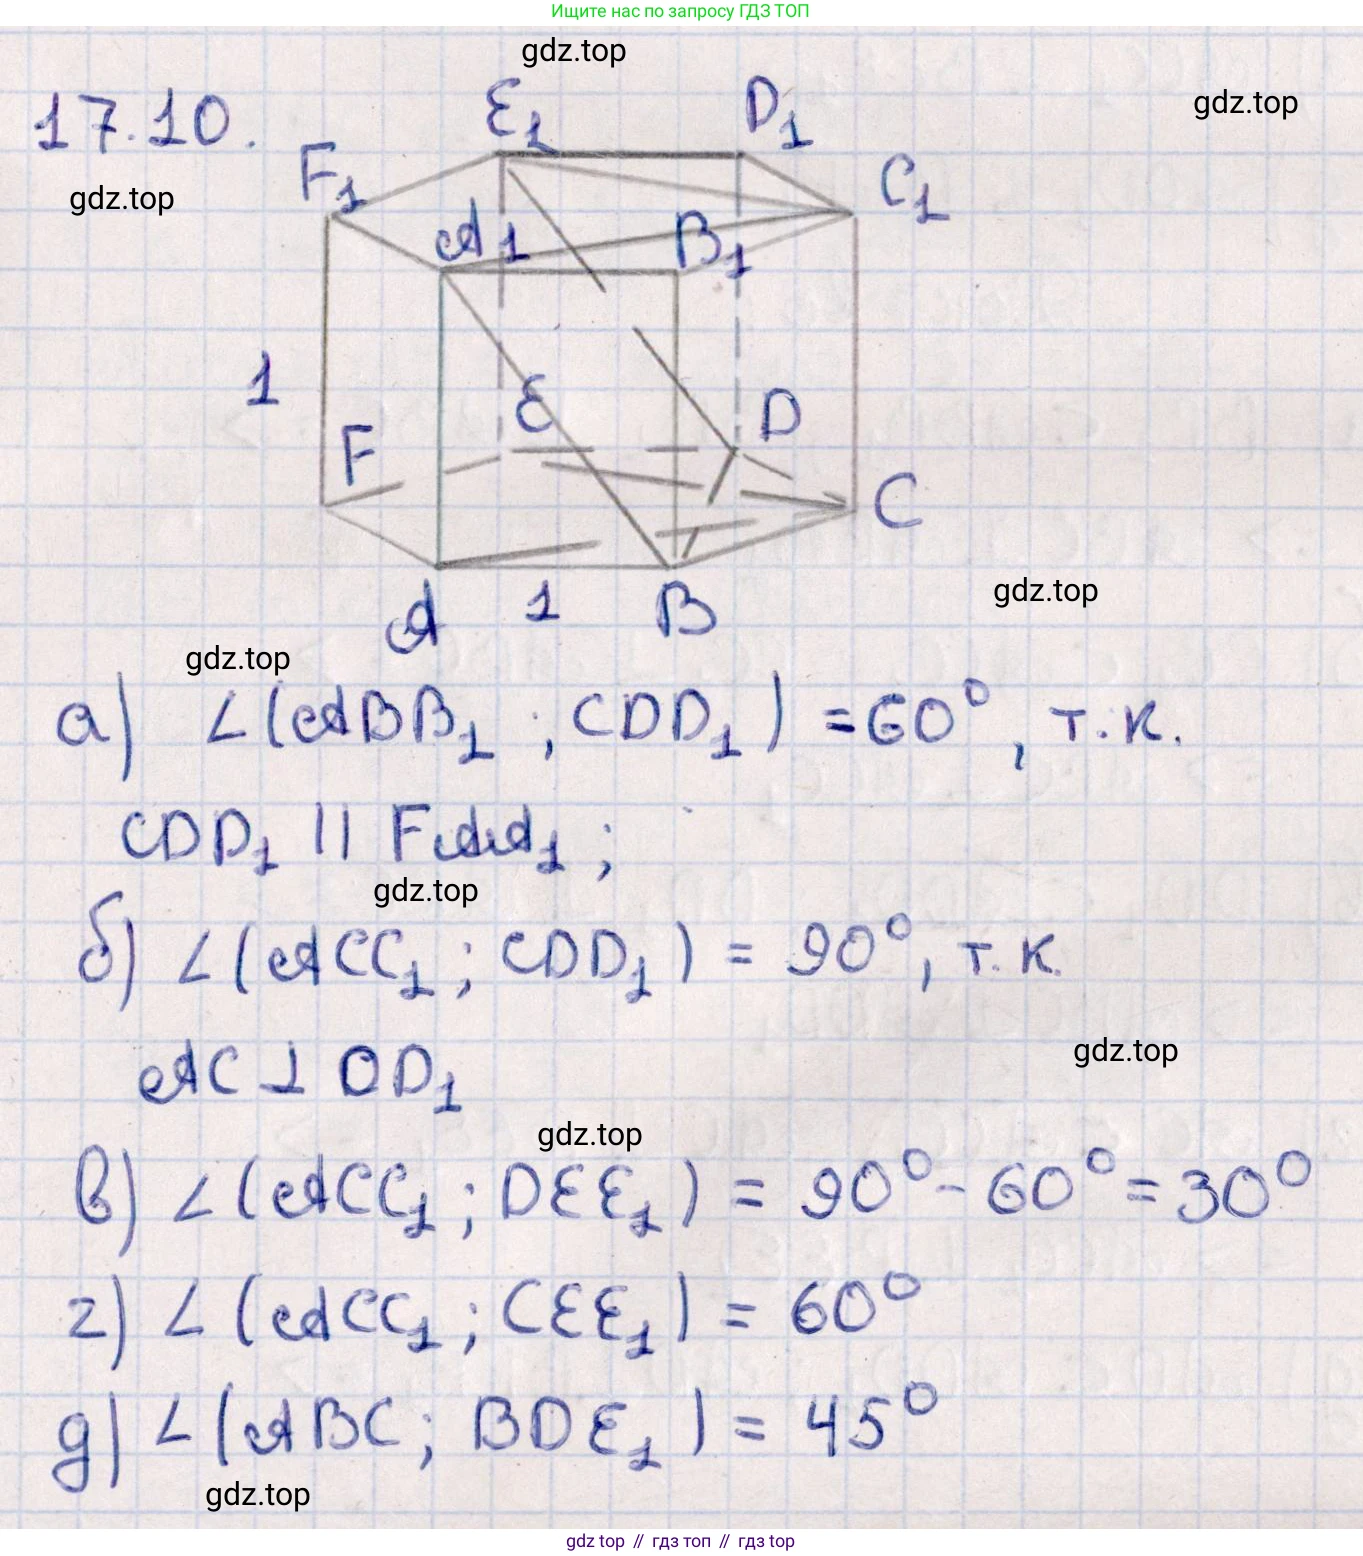 Ищите нас по запросу ГДЗ ТОП
gdz.top
gdz.top
17.10.
gdz.top
E₁
D₁
F₁
C₁
A₁
B₁
1
E
D
F
C
A
1
B
gdz.top
gdz.top
а) ∠(ABB₁; CDD₁) = 60°, т.к.
CDD₁ || FAA₁;
gdz.top
б) ∠(ACC₁; CDD₁) = 90°, т.к.
AC ⊥ DD₁
gdz.top
gdz.top
в) ∠(ACC₁; DEE₁) = 90° - 60° = 30°
г) ∠(ACC₁; CEE₁) = 60°
д) ∠(ABC; BDE₁) = 45°
gdz.top
gdz top // гдз топ // гдз top